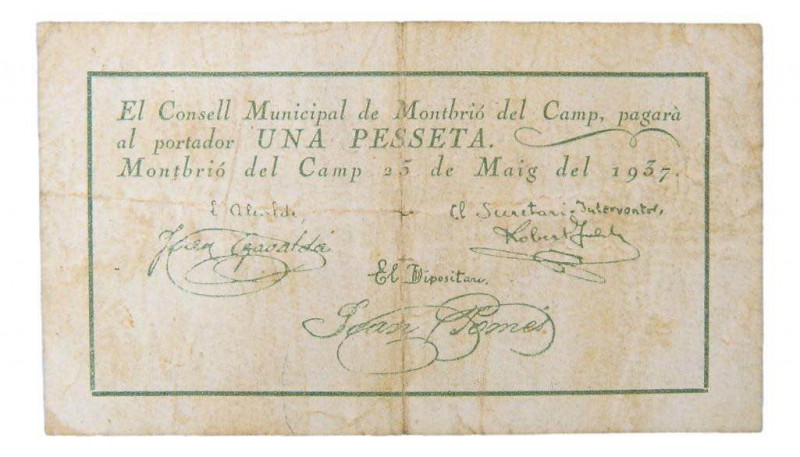 El Consell Municipal de Montbrió del Camp, pagarà
al portador UNA PESSETA.
Montbrió del Camp 25 de Maig del 1937.
L'Alcalde,
El Secretari-Interventor,
Joan
Robert
El Dipositari.
Joan Gomés